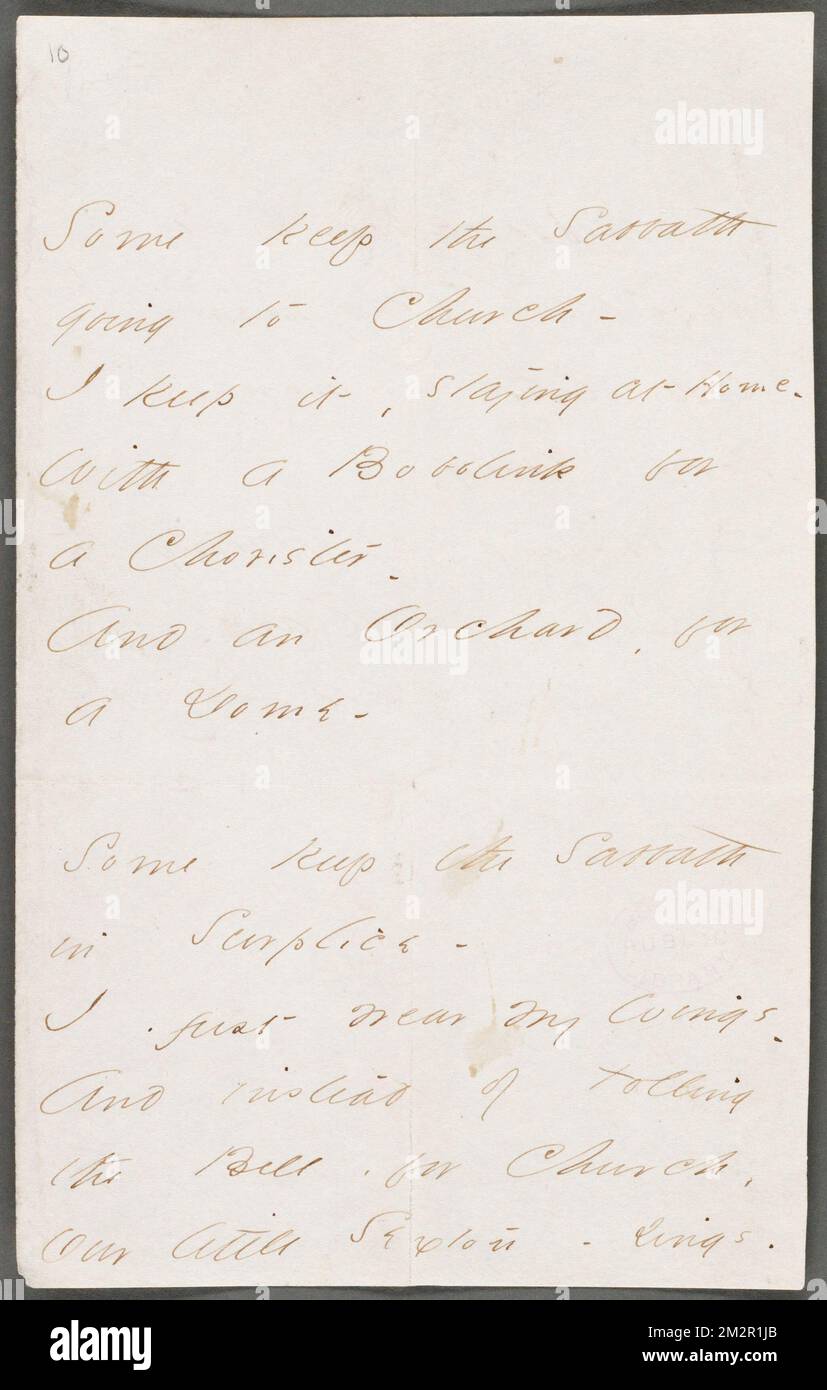 10
Some keep the Sabbath
going to Church -
I keep it, staying at Home -
With a Bobolink for
a Chorister -
And an Orchard, for
a Dome -
Some keep the Sabbath
in Surplice -
I just wear my Wings -
And instead of tolling
the Bell, for Church,
Our little Sexton - sings.
alamy
alamy
alamy
Image ID: 2M2R1JB
www.alamy.com